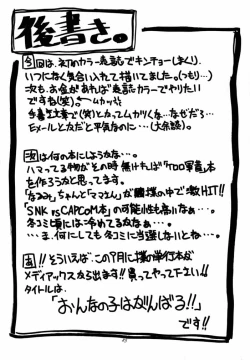 後書き。
今回は、ネタnカラー表紙でキンチョーしまくり。
いつになく気合い入れて描いてました。(つもり…)
次も、お金があれば表紙カラーでやりたい
ですね(笑)。ゲームカッ
手書き文章で(笑)とかってムカツくな…なぜだろ…
Eメールとかだと平気なのに…(大余談)。
次は何の本にしようかな…。
ハマってる物がその時無ければ「TOD軍責」本
を作ろうかと思ってます。
「なるみ」ちゃんと「ママさん」が僕の中で激HIT!!
「SNK vs CAPCOM本」の可能性も高いなぁ…。
冬コミ頃には冷めてるかなぁ…。
…ま、何にしても冬コミに当選しないとね…。
あ!!そういえば、この9月に僕の単行本が
メディアックスから出ます!!買ってやって下さい!!
タイトルは、
「おんなの子はがんばる!!」
です!!